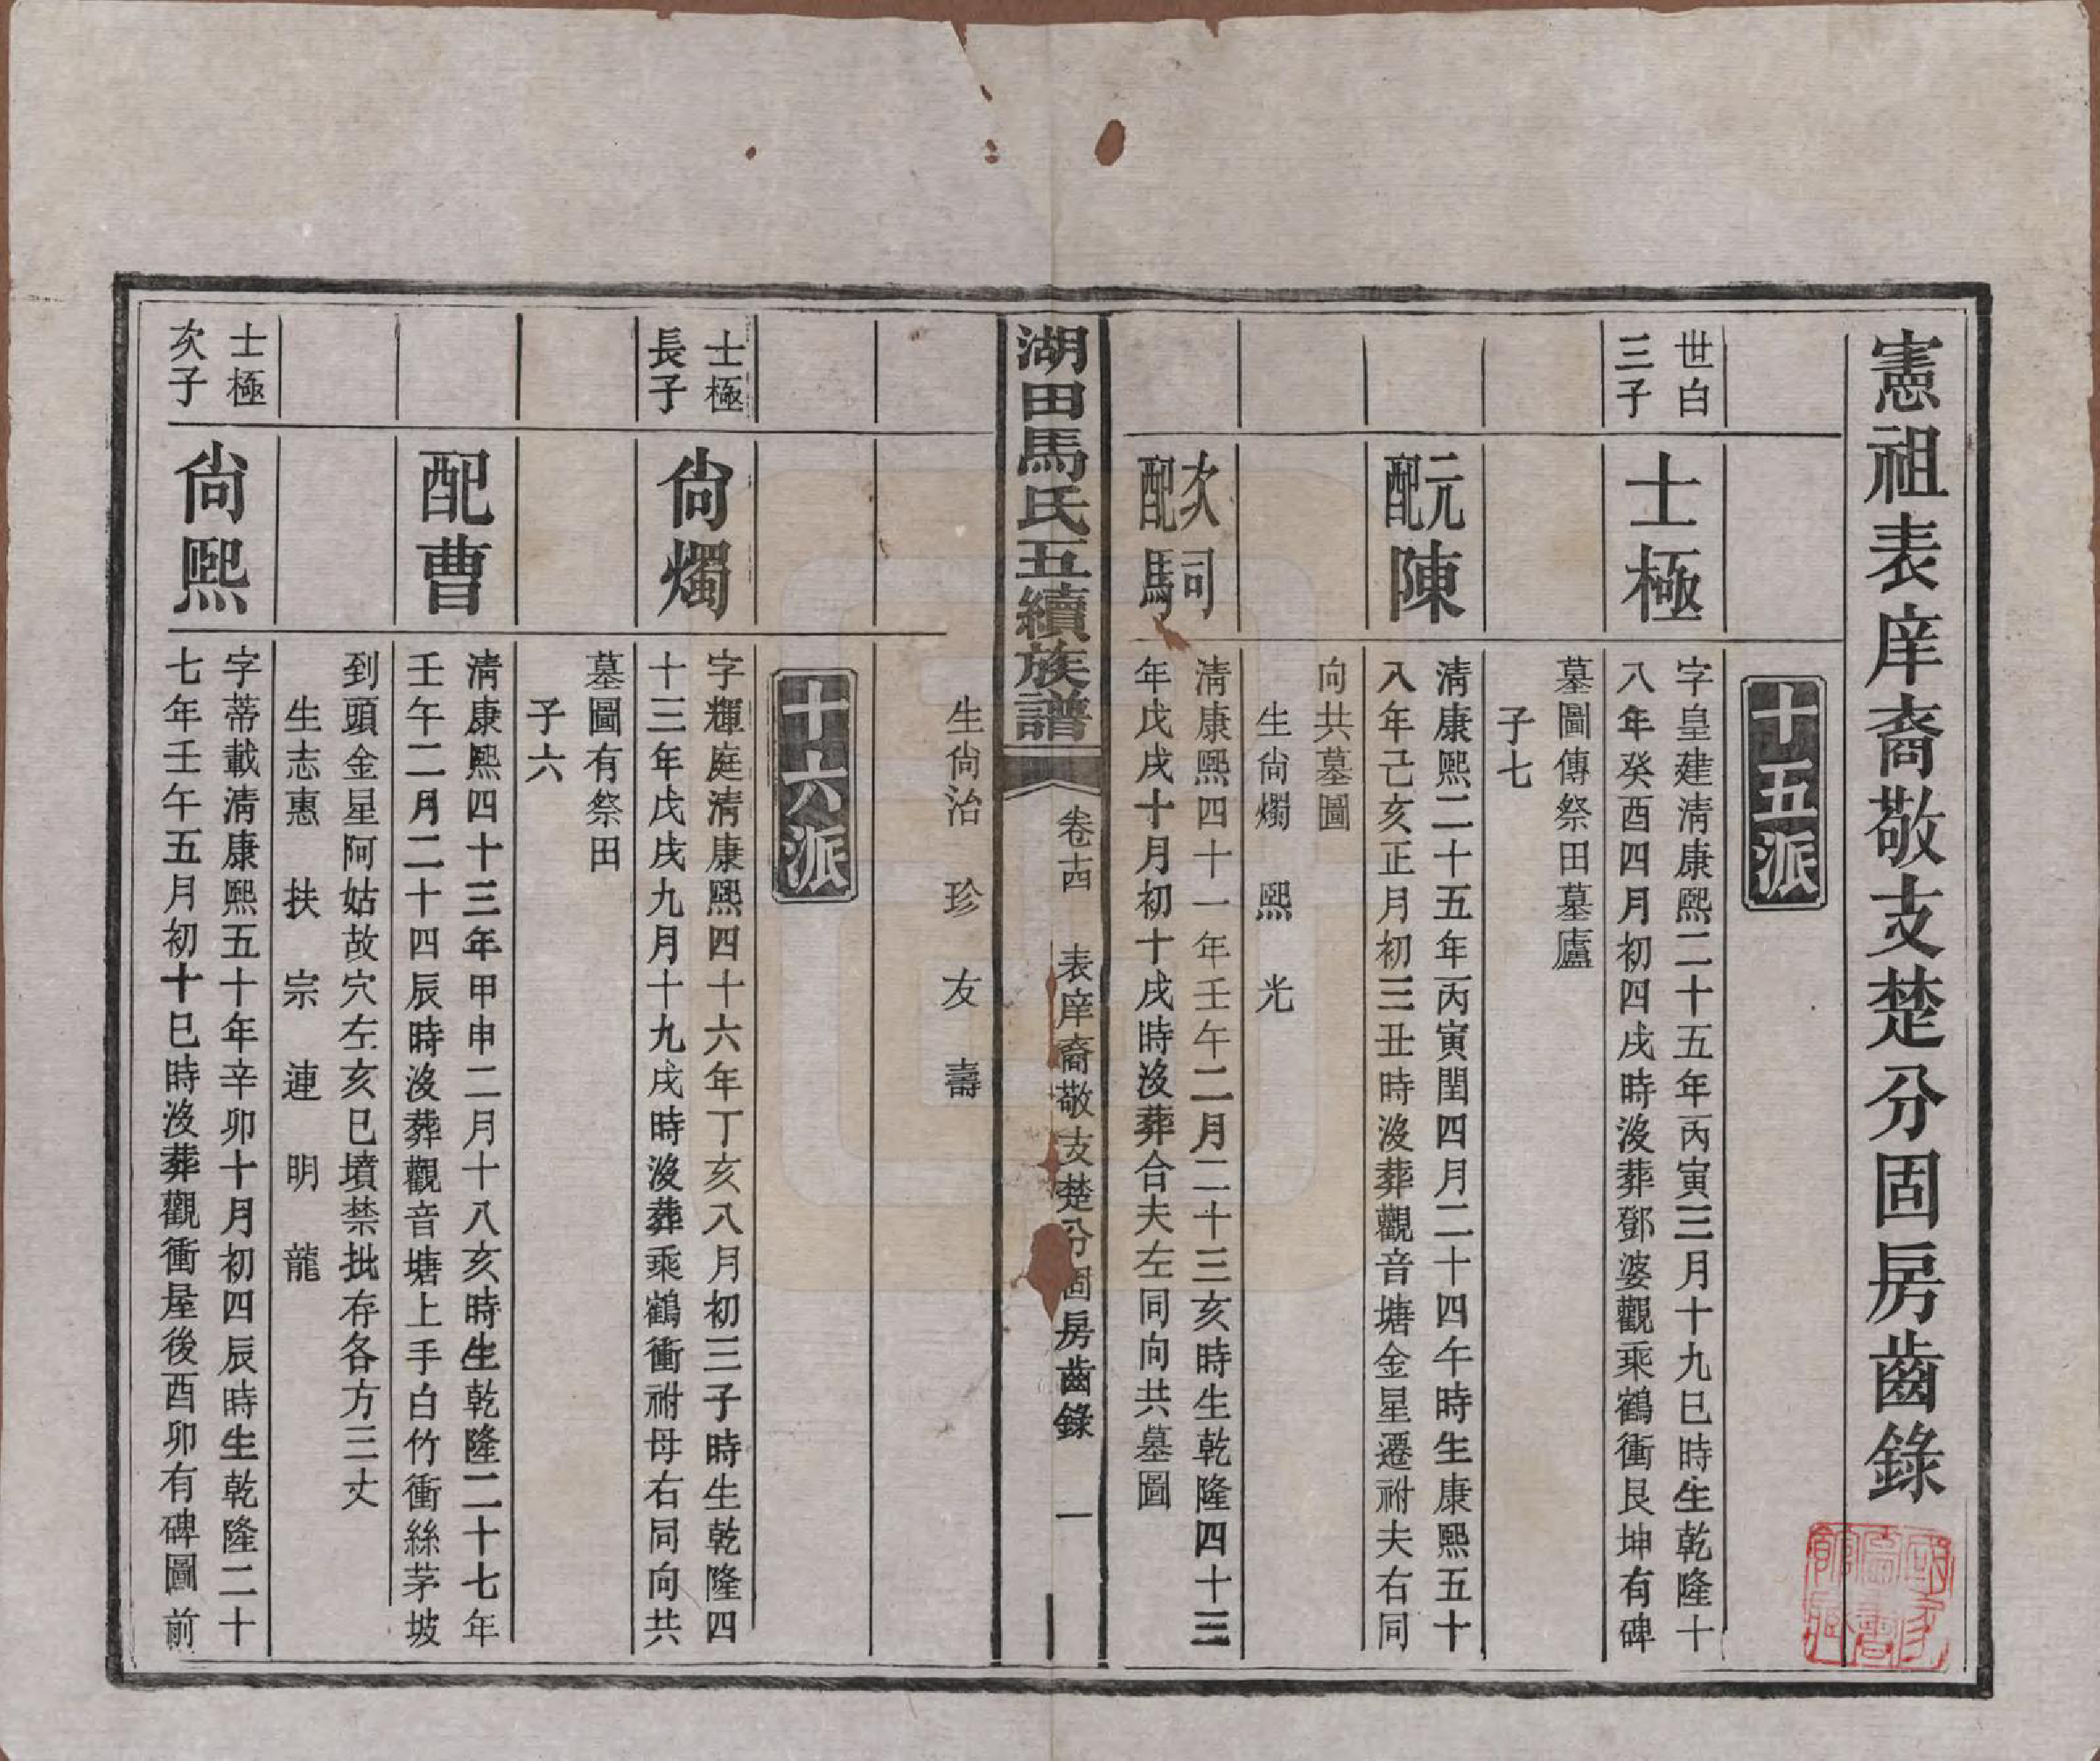 憲祖表庠裔敬支楚分固房齒錄
十五派
世白
三子
士極
字皇建清康熙二十五年丙寅三月十九巳時生乾隆十
八年癸酉四月初四戌時沒葬鄧婆觀乘鶴衝艮坤有碑
墓圖傳祭田墓廬
子七
元配陳
清康熙二十五年丙寅閏四月二十四午時生康熙五十
八年己亥正月初三丑時沒葬觀音塘金星遷祔夫右同
向共墓圖
生尙燭 熙 光
次配司馬
清康熙四十一年壬午二月二十三亥時生乾隆四十三
年戊戌十月初十戌時沒葬合夫左同向共墓圖
湖田馬氏五續族譜
卷十四
表庠裔敬支楚分固房齒錄
一
生尙治 珍 友 壽
十六派
士極
長子
尙燭
字輝庭清康熙四十六年丁亥八月初三子時生乾隆四
十三年戊戌九月十九戌時沒葬乘鶴衝祔母右同向共
墓圖有祭田
子六
配曹
清康熙四十三年甲申二月十八亥時生乾隆二十七年
壬午二月二十四辰時沒葬觀音塘上手白竹衝絲茅坡
到頭金星阿姑故穴左亥巳墳禁批存各方三丈
生志惠 扶 宗 連 明 龍
士極
次子
尙熙
字蒂載清康熙五十年辛卯十月初四辰時生乾隆二十
七年壬午五月初十巳時沒葬觀衝屋後酉卯有碑圖前